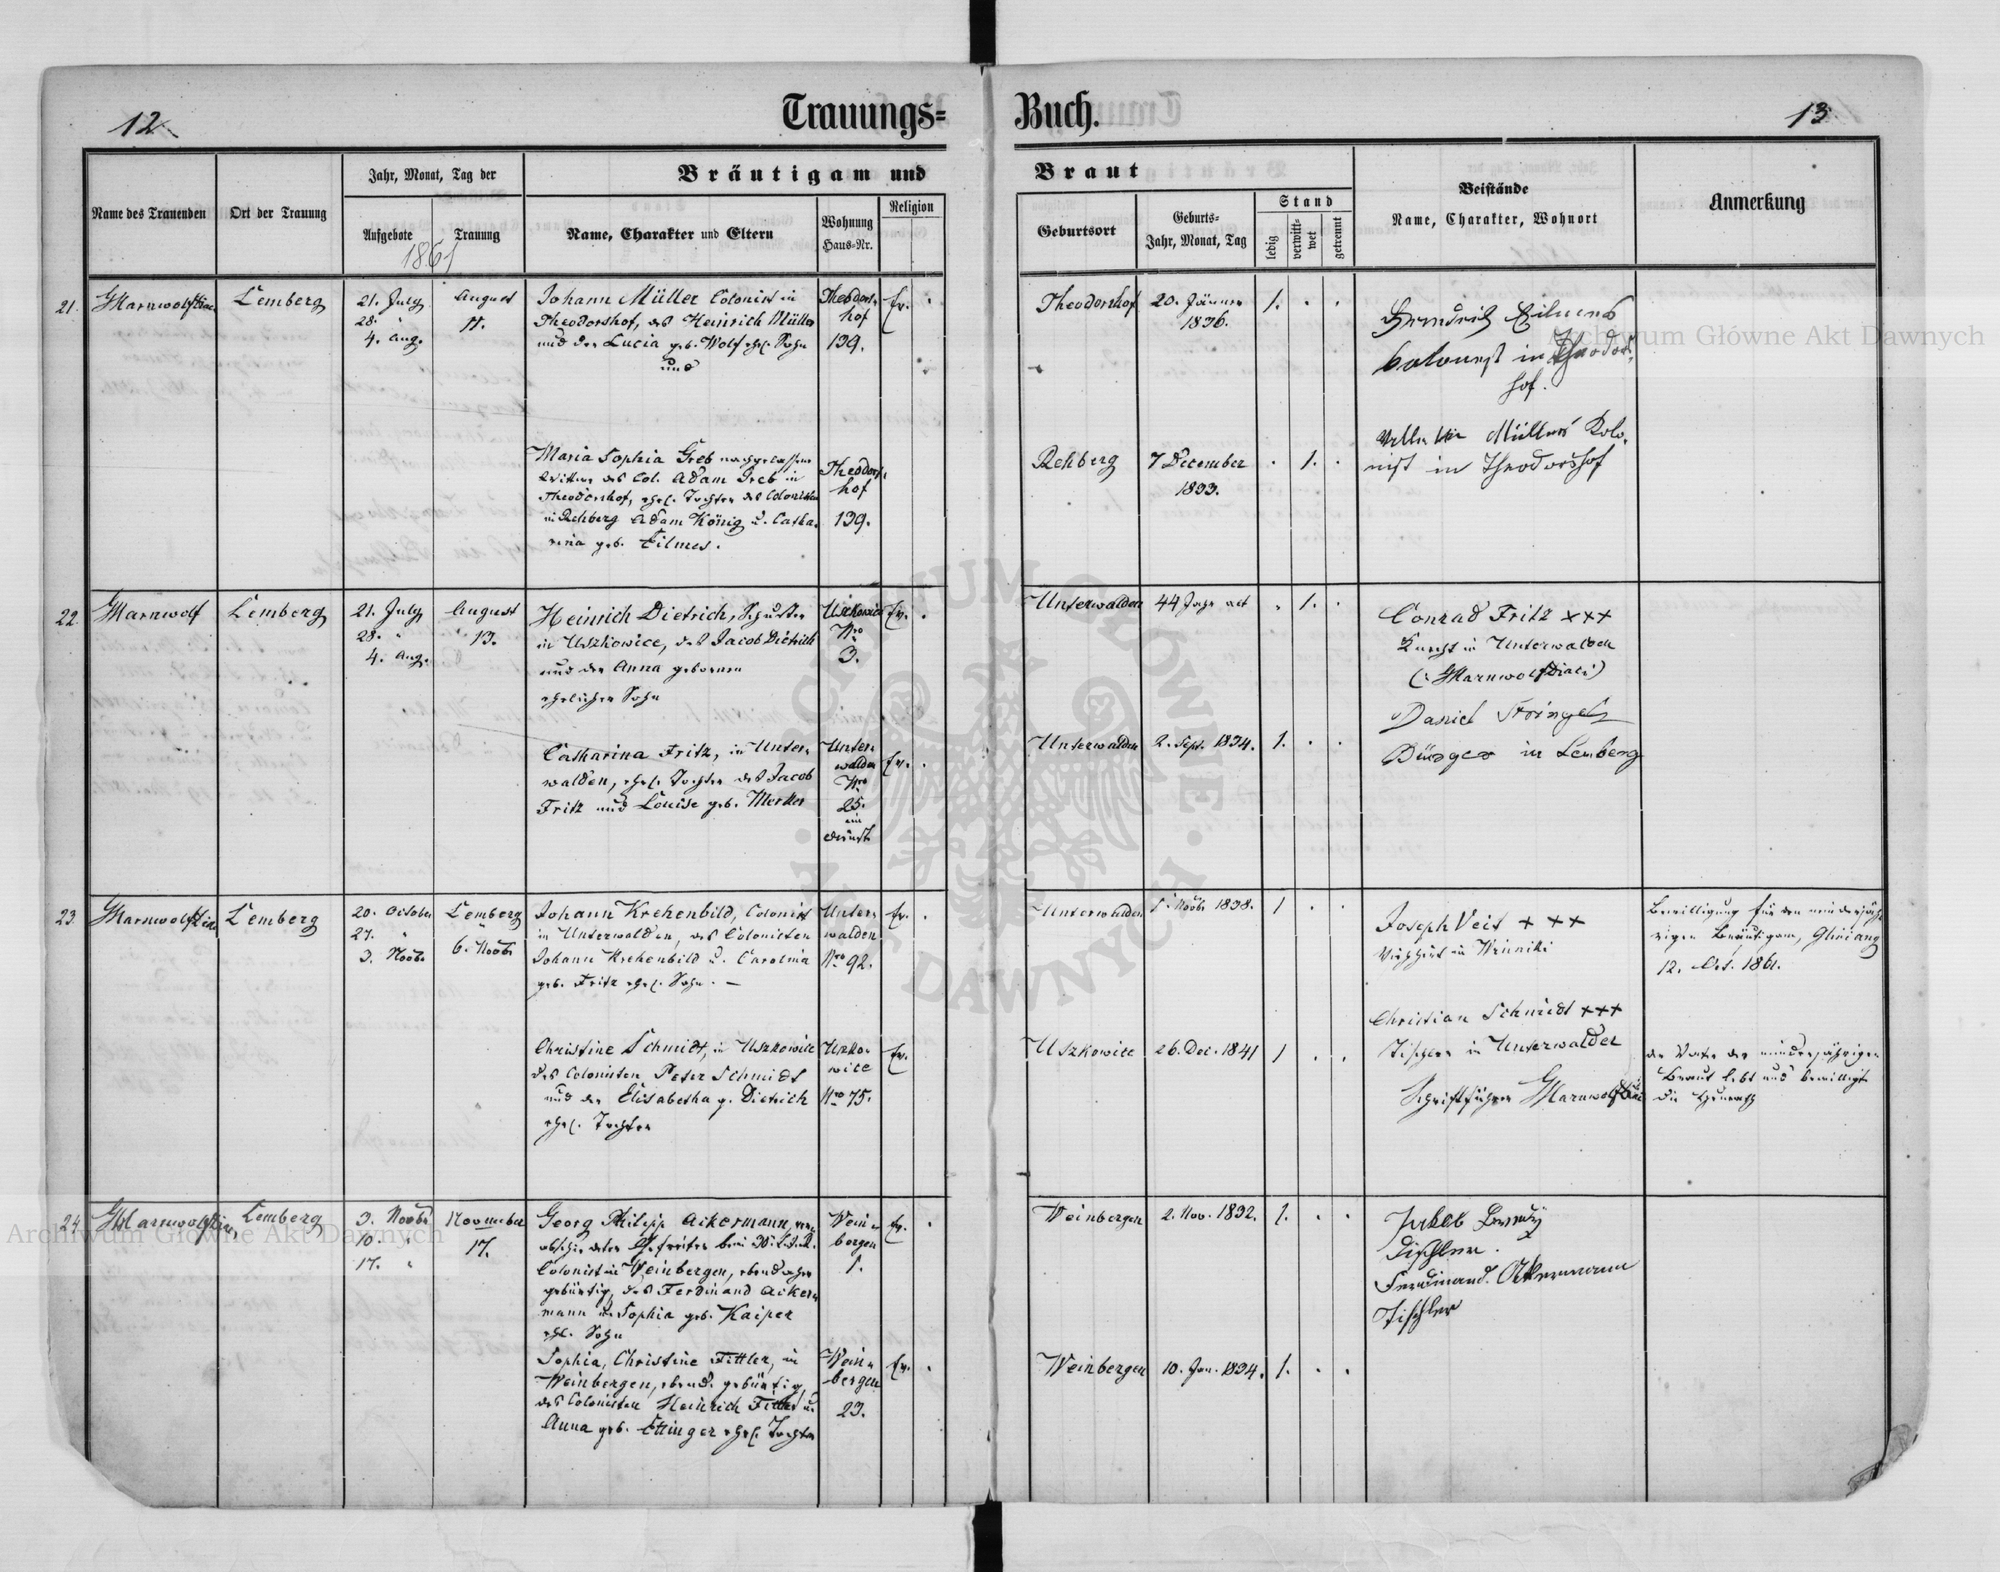 12
Trauungs=
Name des Trauenden
Ort der Trauung
Jahr, Monat, Tag der
Aufgebote
Trauung
1861
Bräutigam und
Name, Charakter und Eltern
Wohnung
Haus-Nr.
Religion
21. Lemberg
21. July
28. "
4. Aug.
August
11.
Johann Müller Colonist in
Theodorshof, des Heinrich Müller
und der Lucia geb. Wolf ehel. Sohn
und
Theodors-
hof
139.
Ev.
Maria Sophia Greb nachgelassene
Wittwe des Col. Adam Greb in
Theodorshof, ehel. Tochter des Colonisten
in Rehberg Adam König u. Catha-
rina geb. Filmes.
Theodors-
hof
139.
22. Lemberg
21. July
28. "
4. Aug.
August
13.
Heinrich Dietrich,
in Uszkowice, des Jacob Dietrich
und der Anna gebornen
ehelicher Sohn
Uszkowice
Nro
3.
Ev.
Catharina Fritz, in Unter-
walden, ehel. Tochter des Jacob
Fritz und Louise geb. Merker
Unter-
walden
Nro
25.
im
Dienst
Ev.
23. Lemberg
20. October
27. "
3. Novbr.
Lemberg
6. Novbr
Johann Krehenbild, Colonist
in Unterwalden, des Colonisten
Johann Krehenbild u. Carolina
geb. Fritz ehel. Sohn. —
Unter-
walden
Nro 92.
Ev.
Christine Schmidt, in Uszkowice
des Colonisten Peter Schmidt
und der Elisabetha g. Dietrich
ehel. Tochter
Uszko-
wice
Nro 75.
Ev.
24. Lemberg
3. Novbr
10. "
17. "
November
17.
Georg Philipp Ackermann, ver-
abschiedeter Gefreiter beim 30.
Colonist in Weinbergen, ebendaher
gebürtig, des Ferdinand Acker-
mann u. Sophia geb. Kaiper
ehl. Sohn
Wein-
bergen
1.
Ev.
Sophia, Christine Fittler, in
Weinbergen, ebend. gebürtig,
des Colonisten Heinrich Fittler u.
Anna geb. Ettinger ehel. Tochter
Wein-
bergen
23.
Ev.
Buch.
13
Braut
Geburtsort
Geburts-
Jahr, Monat, Tag
Stand
ledig
verwitt-
wet
getrennt
Beistände
Name, Charakter, Wohnort
Anmerkung
Theodorshof
20. Jänner
1836.
1.
Colonist in Theodors-
hof.
Rehberg
7 December
1833.
1.
Müller Kolo-
nist in Theodorshof
Unterwalden
44 Jahr alt
1.
Conrad Fritz +++
Knecht in Unterwalden
Unterwalden
2. Sept. 1834.
1.
Daniel
Bürger in Lemberg
Unterwalden
5. Novbr 1838.
1
Joseph Veit + + +
Viehhirt in Winniki
Bewilligung für den minderjäh-
rigen Bräutigam,
12. Oct. 1861.
Uszkowice
26. Dec. 1841
1
Christian Schmidt +++
Tischler in Unterwalden
Schriftführer
der Vater der minderjährigen
Braut lebt und bewilligt
die Heurath
Weinbergen
2. Nov. 1832.
1.
Jakob
Tischler.
Ferdinand Ackermann
Tischler
Weinbergen
10. Jan. 1834.
1.
Archiwum Główne Akt Dawnych
Archiwum Główne Akt Dawnych
ARCHIWUM GŁÓWNE AKT DAWNYCH